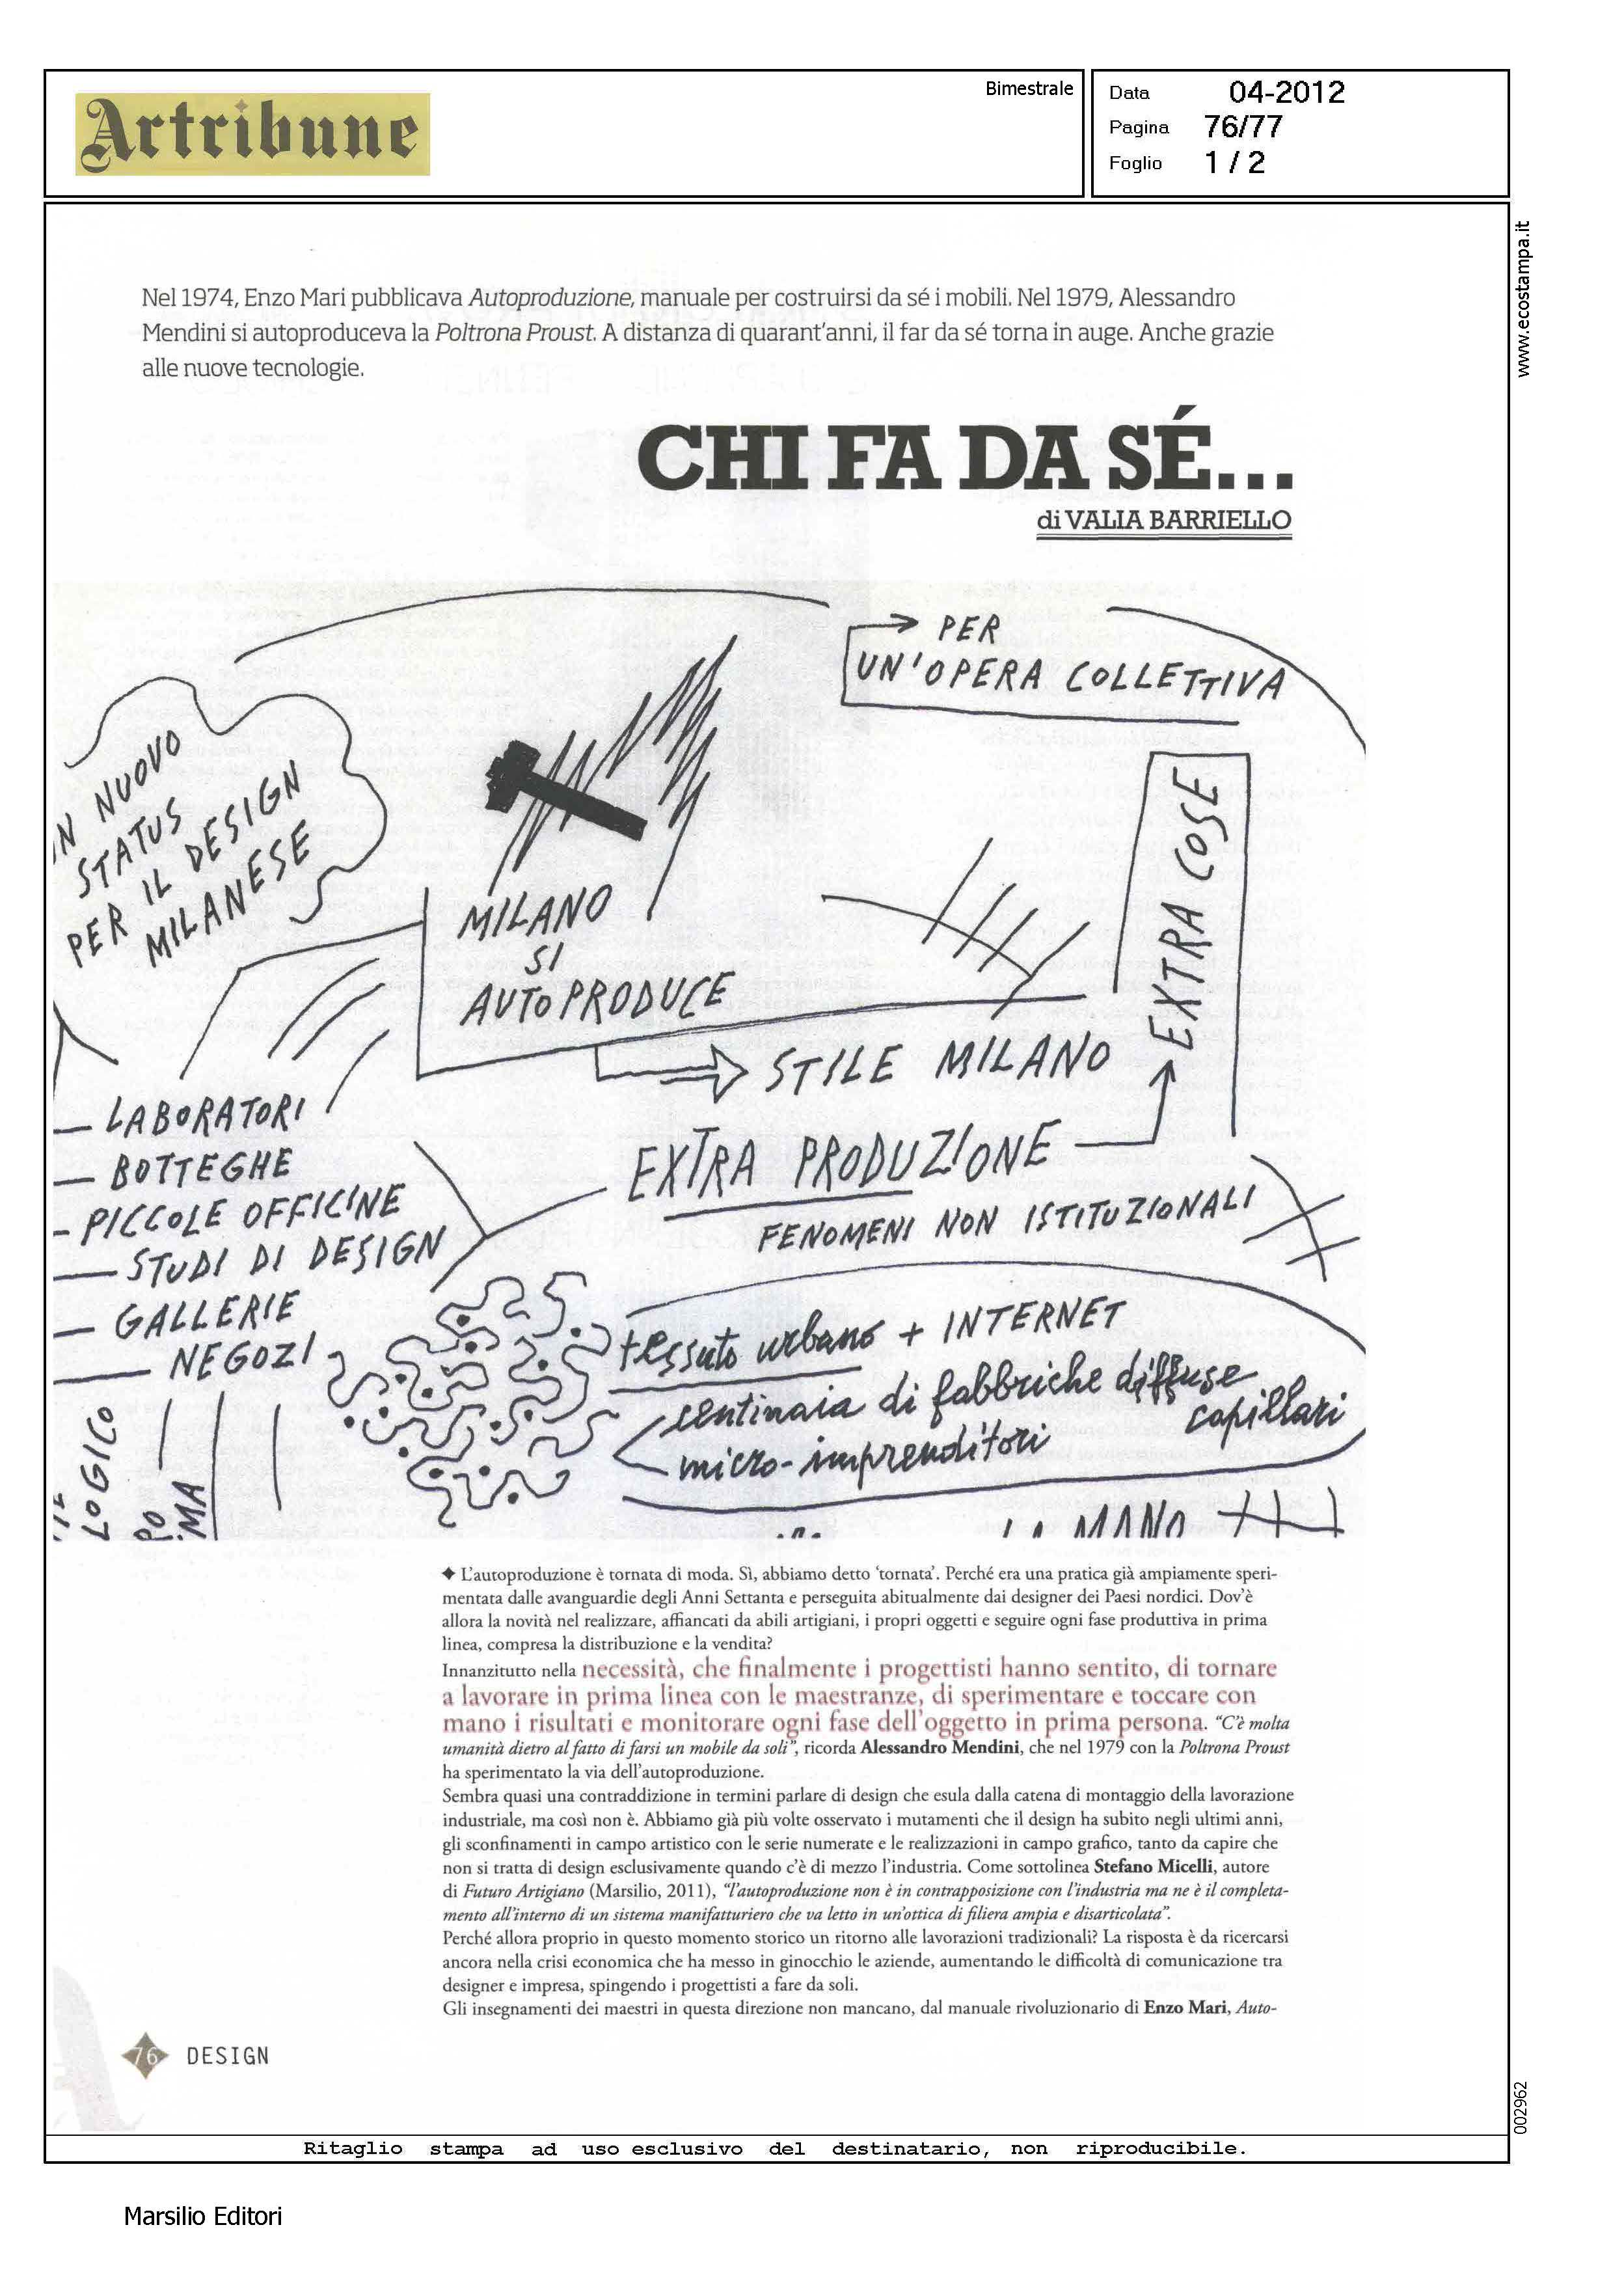 Artribune
Bimestrale
Data 04-2012
Pagina 76/77
Foglio 1 / 2
www.ecostampa.it
Nel 1974, Enzo Mari pubblicava Autoproduzione, manuale per costruirsi da sé i mobili. Nel 1979, Alessandro
Mendini si autoproduceva la Poltrona Proust. A distanza di quarant'anni, il far da sé torna in auge. Anche grazie
alle nuove tecnologie.
CHI FA DA SÉ...
di VALIA BARRIELLO
PER
UN'OPERA COLLETTIVA
NUOVO
STATUS
PER IL DESIGN
MILANESE
MILANO
SI
AUTOPRODUCE
EXTRA COSE
STILE MILANO
EXTRA PRODUZIONE
FENOMENI NON ISTITUZIONALI
– LABORATORI
– BOTTEGHE
- PICCOLE OFFICINE
– STUDI DI DESIGN
– GALLERIE
– NEGOZI
tessuto urbano + INTERNET
centinaia di fabbriche diffuse
capillari
micro-imprenditori
LOGICO
MANO
✦ L'autoproduzione è tornata di moda. Sì, abbiamo detto 'tornata'. Perché era una pratica già ampiamente speri-
mentata dalle avanguardie degli Anni Settanta e perseguita abitualmente dai designer dei Paesi nordici. Dov'è
allora la novità nel realizzare, affiancati da abili artigiani, i propri oggetti e seguire ogni fase produttiva in prima
linea, compresa la distribuzione e la vendita?
Innanzitutto nella necessità, che finalmente i progettisti hanno sentito, di tornare
a lavorare in prima linea con le maestranze, di sperimentare e toccare con
mano i risultati e monitorare ogni fase dell'oggetto in prima persona. "C'è molta
umanità dietro al fatto di farsi un mobile da soli", ricorda Alessandro Mendini, che nel 1979 con la Poltrona Proust
ha sperimentato la via dell'autoproduzione.
Sembra quasi una contraddizione in termini parlare di design che esula dalla catena di montaggio della lavorazione
industriale, ma così non è. Abbiamo già più volte osservato i mutamenti che il design ha subito negli ultimi anni,
gli sconfinamenti in campo artistico con le serie numerate e le realizzazioni in campo grafico, tanto da capire che
non si tratta di design esclusivamente quando c'è di mezzo l'industria. Come sottolinea Stefano Micelli, autore
di Futuro Artigiano (Marsilio, 2011), "l'autoproduzione non è in contrapposizione con l'industria ma ne è il completa-
mento all'interno di un sistema manifatturiero che va letto in un'ottica di filiera ampia e disarticolata".
Perché allora proprio in questo momento storico un ritorno alle lavorazioni tradizionali? La risposta è da ricercarsi
ancora nella crisi economica che ha messo in ginocchio le aziende, aumentando le difficoltà di comunicazione tra
designer e impresa, spingendo i progettisti a fare da soli.
Gli insegnamenti dei maestri in questa direzione non mancano, dal manuale rivoluzionario di Enzo Mari, Auto-
76 DESIGN
002962
Ritaglio stampa ad uso esclusivo del destinatario, non riproducibile.
Marsilio Editori